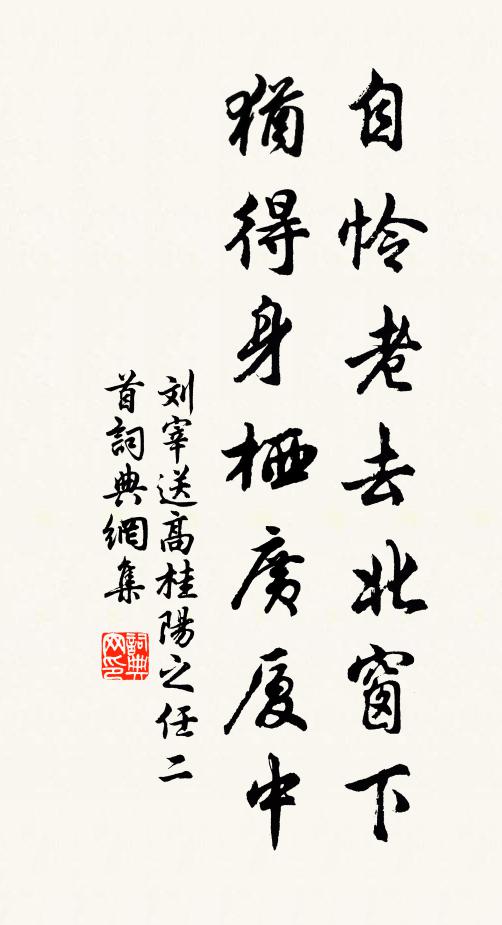 自怜老去北窗下
犹得身栖廣厦中
刘宰送高桂陽之任二
首詞典網集
詞典网印